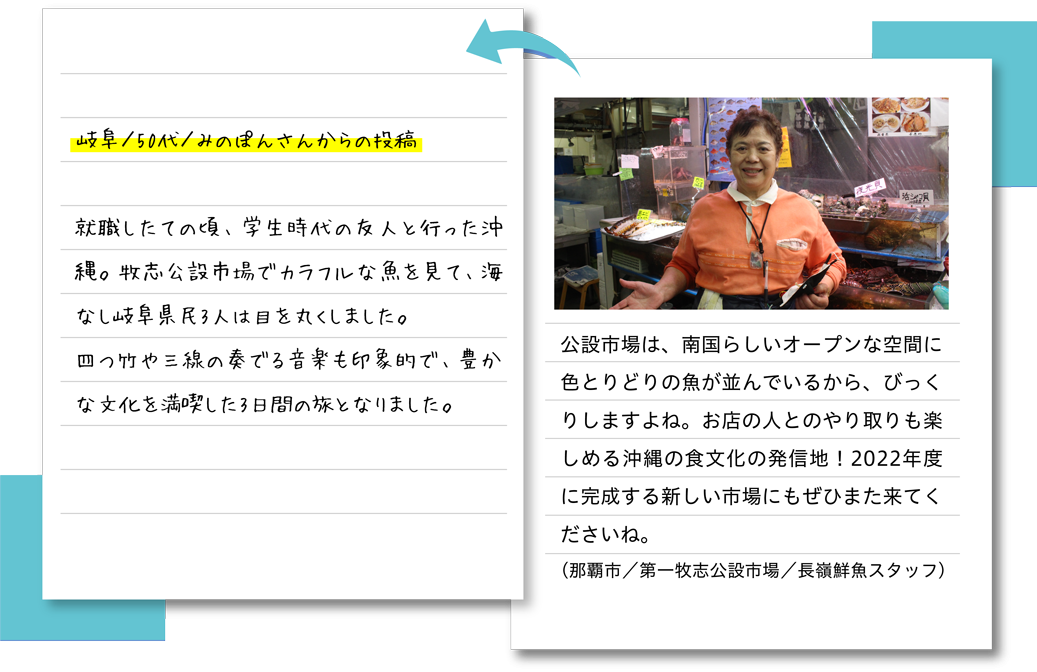 岐阜/50代/みのぽんさんからの投稿
就職したての頃、学生時代の友人と行った沖
縄。牧志公設市場でカラフルな魚を見て、海
なし岐阜県民3人は目を丸くしました。
四つ竹や三線の奏でる音楽も印象的で、豊か
な文化を満喫した3日間の旅となりました。
公設市場は、南国らしいオープンな空間に
色とりどりの魚が並んでいるから、びっく
りしますよね。お店の人とのやり取りも楽
しめる沖縄の食文化の発信地！2022年度
に完成する新しい市場にもぜひまた来てく
ださいね。
（那覇市／第一牧志公設市場／長嶺鮮魚スタッフ）